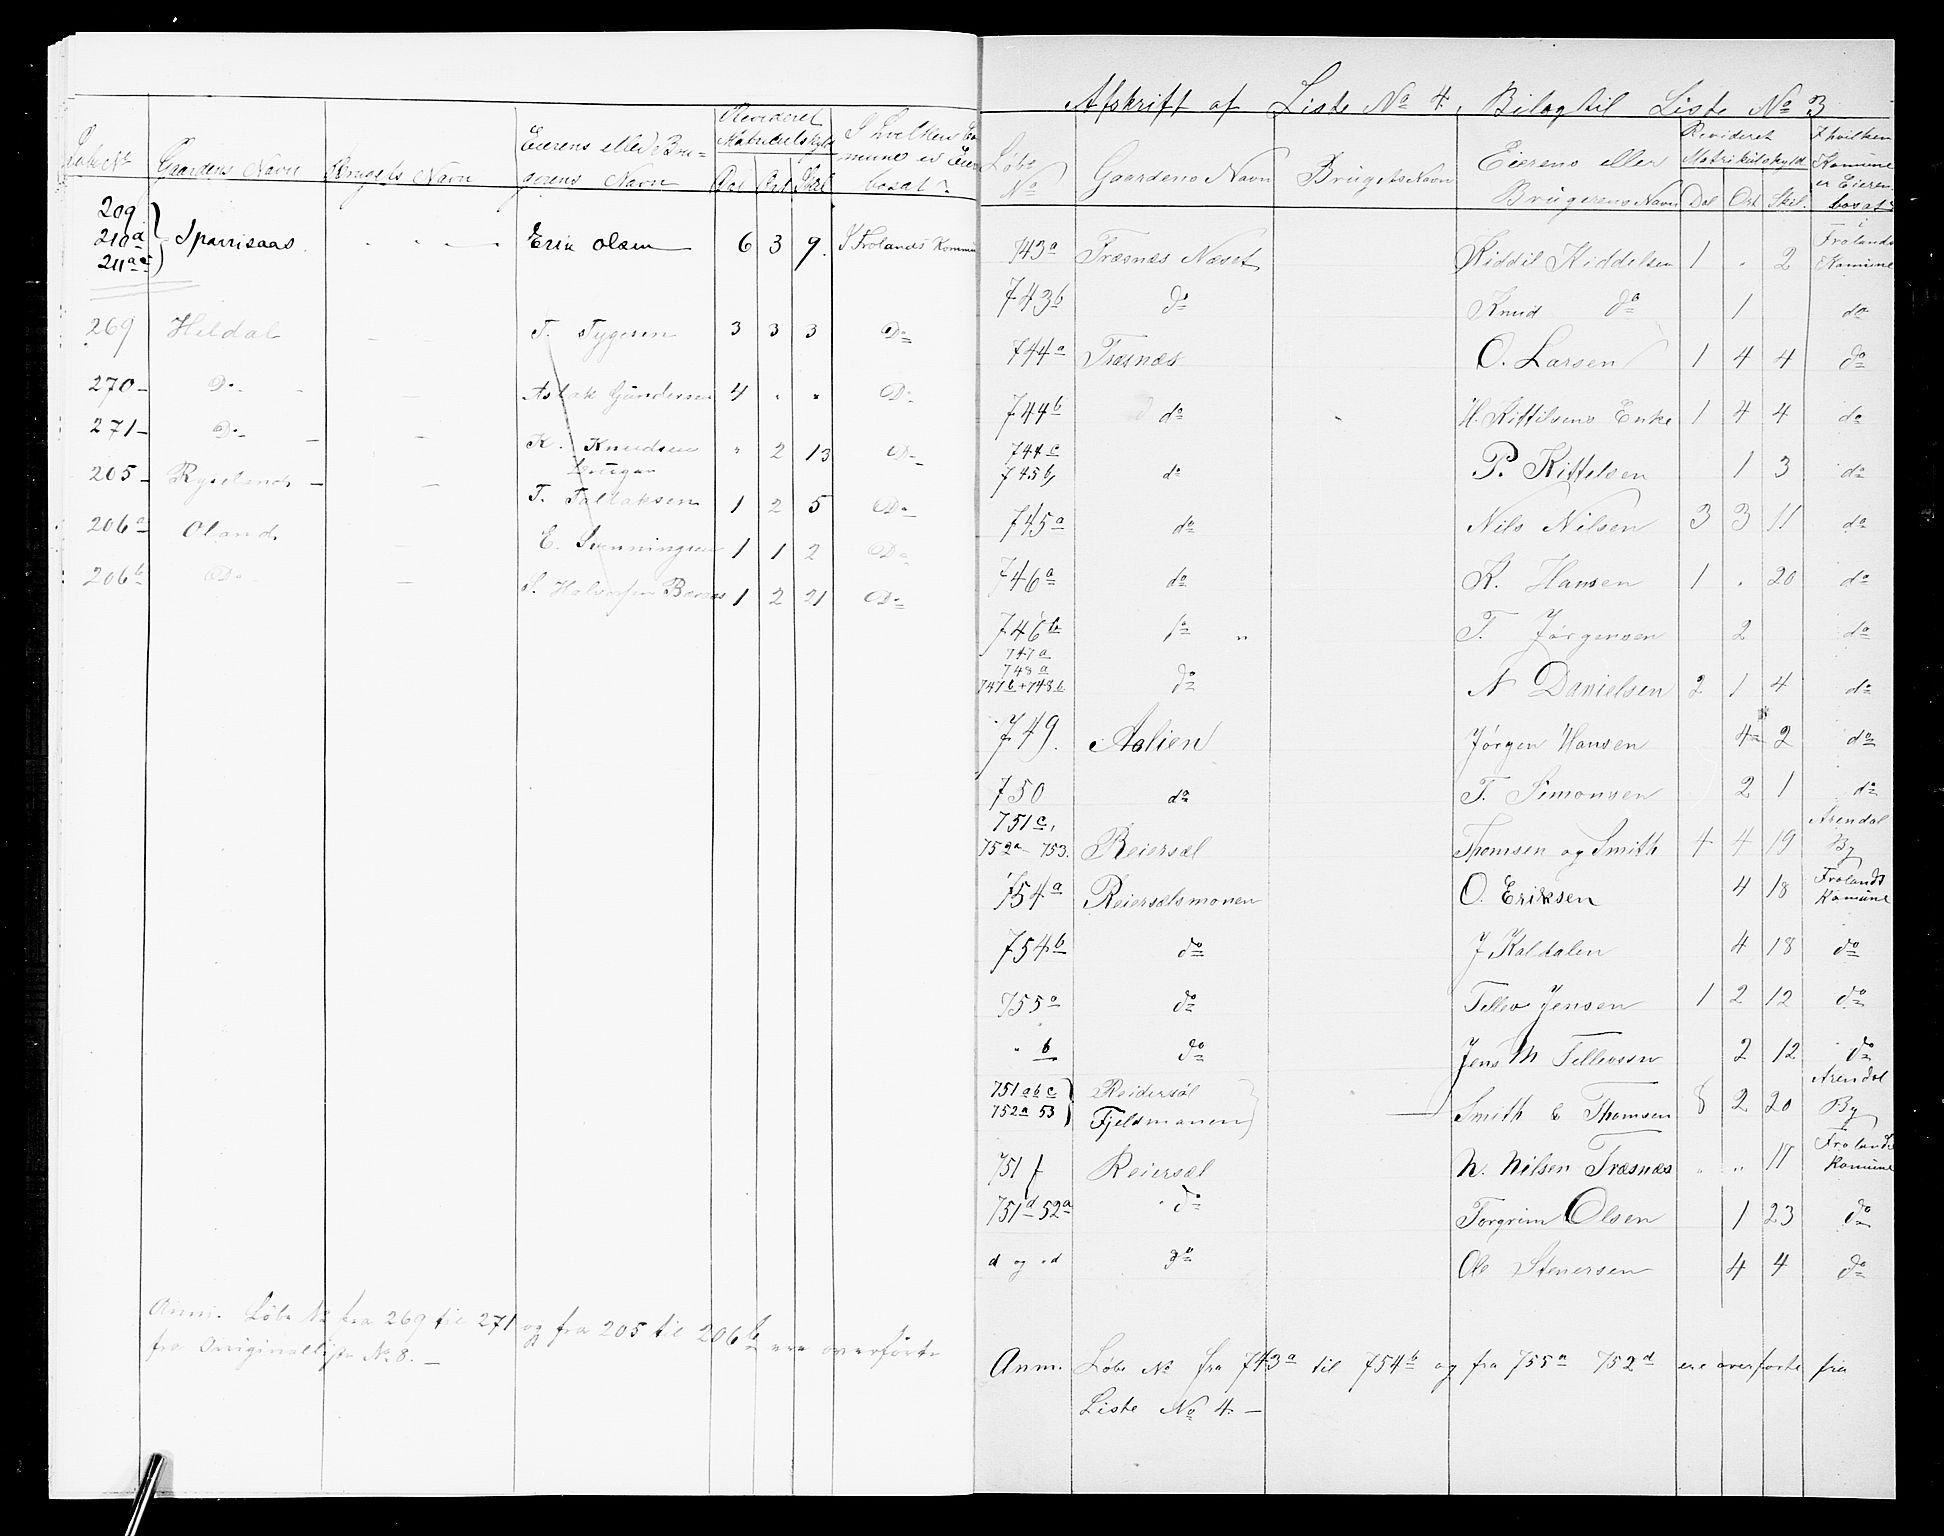 Løbe No | Gaardens Navn | Brugets Navn | Eierens eller Bru-
gerens Navn | Revideret
Matrikulskyld
Dal | Ort | Skil | I hvilken Ko-
mune er Eieren
bosat?
209
210a
211a | Sparrisaas | " | Erik Olsen | 6 | 3 | 9. | I Frolands Kommune
269 | Heldal | – | T. Tygesen | 3 | 3 | 3 | Do
270 – | Do – | – | Aslak Gundersen | 4 | " | " | Do
271 – | Do – | – | K. Knudsen
| " | 2 | 13 | Do
205 – | Ryseland – | – | T. Tallaksen | 1 | 2 | 5 | Do
206a | Oland. | – | E. Svenningsen | 1 | 1 | 2 | Do
206b | Do | – | S. Halvorsen | 1 | 2 | 21 | Do
Anm. Løbe No fra 269 til 271 og fra 205 til 206b ere overførte
fra Originalliste No 8. –
Afskrift af Liste No 4, Bilag til Liste No 3
Løbe
No | Gaardens Navn | Brugets Navn | Eierens eller
Brugerens Navn | Revideret
Matrikulskyld
Dal | Ort | Skil. | I hvilken
Komune
er Eieren
bosat?
743a | Træsnæs Næset | Kiddil Kiddelsen | 1 | . | 2 | i
Frolands
Komune
743b | do | Knud do | 1 | do
744a | Træsnæs | O. Larsen | 1 | 4 | 4 | do
744b | do | H. Kittilsens Enke | 1 | 4 | 4 | do
744c
745b, | do | P. Kittelsen | 1 | 3 | do
745a | do | Nils Nilsen | 3 | 3 | 11 | do
746a | do | K. Hansen | 1 | . | 20 | do
746b | do " | T. Jørgensen | 2 | do
747a
748a
747b + 748b | do | N Danielsen | 2 | 1 | 4 | do
749. | Aalien | Jørgen Hansen | 4 | 2 | do
750 | do | T. Simonsen | 2 | 1 | do
751c,
752a – 753. | Reiersæl | Thomsen og Smith | 4 | 4 | 19 | Arendal
By
754a | Reiersælsmonen | O. Eriksen | 4 | 18 | Frolands
Komune
754b | do | J Kaldalen | 4 | 18 | do
755a | do | Tellev Jensen | 1 | 2 | 12 | do
" b | do | Jens M Tellevsen | 2 | 12 | do
751 a b c
752a 53 | Reidersøl
Fjeldmonen | Smith & Thomsen | 8 | 2 | 20 | Arendal
By
751 f | Reiersæl | N. Nilsen Træsnæs | " | " | 11 | Frolands
Komune
751d 52a | " do | Torgrim Olsen | 1 | 23 | do
d og "d | do | Ole Stenersen | 4 | 4 | do
Anm. Løbe No fra 743a til 754b og fra 755a 752d ere overførte fra
Liste No 4. –